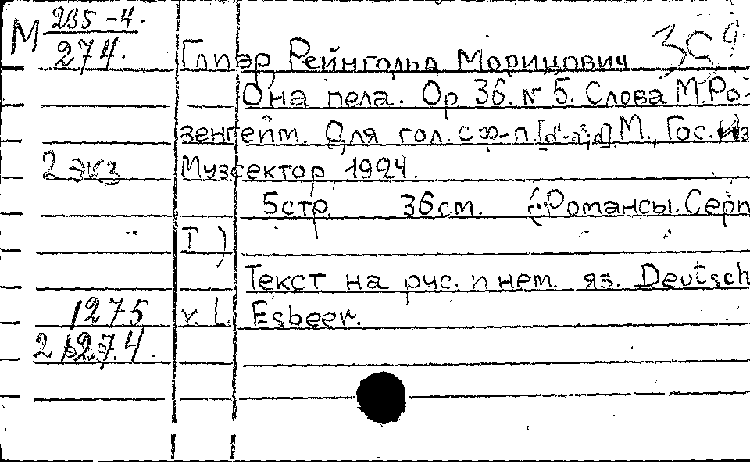 М 235-4.
274.
Глиэр, Рейнгольд Морицович
Она пела. Op 36. № 5. Слова М. Ро-
зенгейм. Для гол. с ф-п. М., Гос. из
2 экз Музсектор 1924.
5 стр. 36 см. (Романсы. Серп
I )
Текст на рус. и нем. яз. Deutsch
1275 v. L. Esbeer.